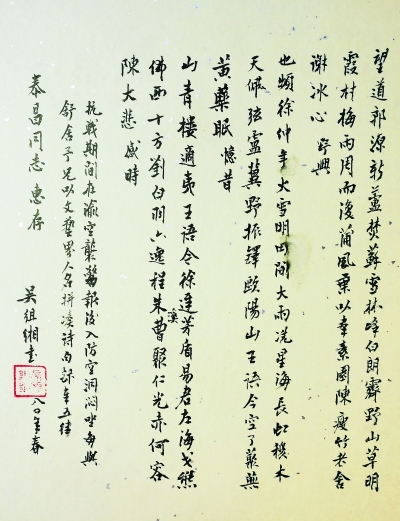 望道郭源新蘆焚蘇雪林烽白朗霽野山草明
霞村梅雨周而復蒲風葉以羣素園陳瘦竹老舍
謝冰心 野興
也頻徐仲年火雪明田間大雨冼星海長虹穆木
天佩弦盧冀野振鐸歐陽山王語今空了
黃藥眠 憶昔
山青樓適夷王語今徐遲茅盾易君左海戈熊
佛西十方劉白羽六逸程朱溪曹聚仁光赤何容
陳大悲 感時
抗戰期間在渝空襲警報後入防空洞悶坐每與
舒舍予兄以文藝界人名拼湊詩句五律
泰昌同志 惠存
吳組緗書 八〇年春